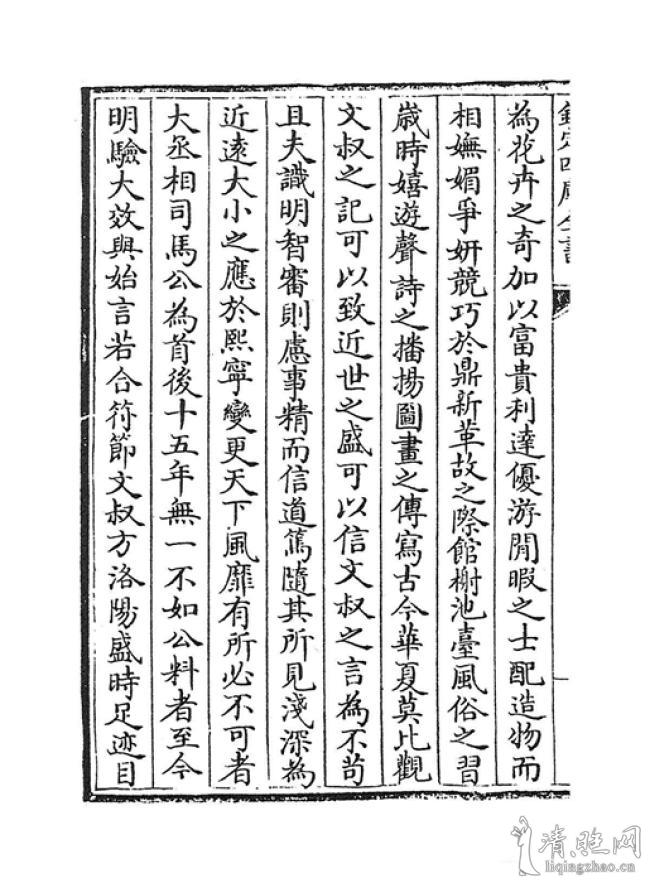 欽定四庫全書
為花卉之奇加以富貴利達優游閒暇之士配造物而
相嫵媚爭妍競巧於鼎新革故之際館榭池臺風俗之習
歲時嬉遊聲詩之播揚圖畫之傳寫古今華夏莫比觀
文叔之記可以致近世之盛可以信文叔之言為不苟
且夫識明智審則慮事精而信道篤隨其所見淺深為
近遠大小之應於熙寧變更天下風靡有所必不可者
大丞相司馬公為首後十五年無一不如公料者至今
明驗大效與始言若合符節文叔方洛陽盛時足迹目
清照网
liqingzhao.cn